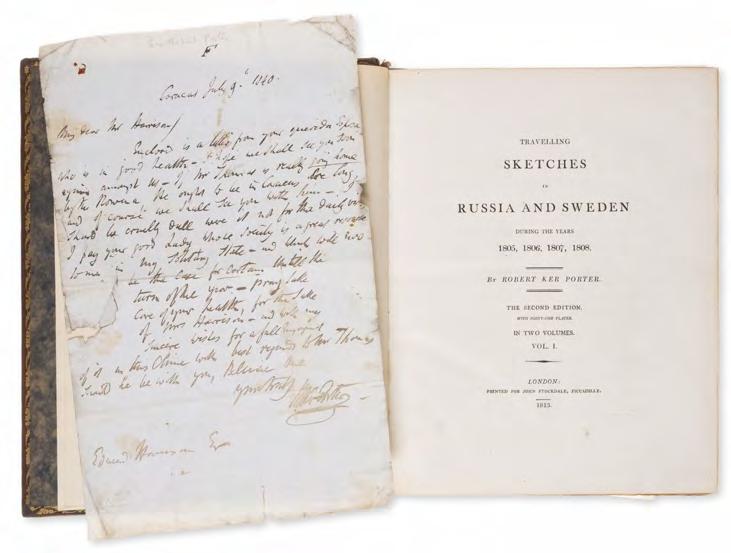 Caracas July 9. 1840.
My dear Mr Harrison/
Enclosed is a letter from your querida Esposa
who is in good health - I hope we shall see you soon
again amongst us - if Mr is really going home
by the Rowena, He ought to be in Caracas ere long,
and of course we shall see you with him - I
should be cruelly dull were it not for the daily visit
I pay your good Lady whose society is a great
to me in my solitary State - and which will
be the Case for Certain Untill the
turn of the year - pray take
Care of your health, for the sake
of Mrs Harrison - and with my
Sincere wishes for a full
of it in this Clime with best regards to Mr Thomas
should he be with you, Believe me
yours truly
Edward Harrison Esqr
TRAVELLING
SKETCHES
IN
RUSSIA AND SWEDEN
DURING THE YEARS
1805, 1806, 1807, 1808.
BY ROBERT KER PORTER.
THE SECOND EDITION.
WITH FORTY-ONE PLATES.
IN TWO VOLUMES.
VOL. I.
LONDON:
PRINTED FOR JOHN STOCKDALE, PICCADILLY.
1813.